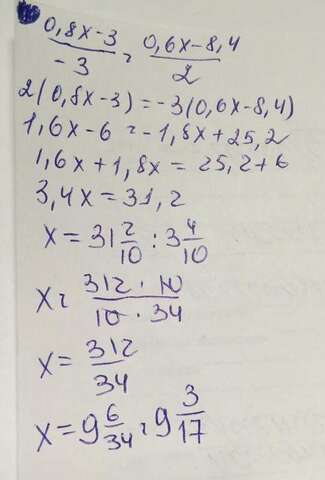 (0,8x-3)/(-3) = (0,6x-8,4)/2
2(0,8x-3) = -3(0,6x-8,4)
1,6x-6 = -1,8x+25,2
1,6x+1,8x = 25,2+6
3,4x = 31,2
x = 31 2/10 : 3 4/10
x = (312 · 10)/(10 · 34)
x = 312/34
x = 9 6/34 = 9 3/17